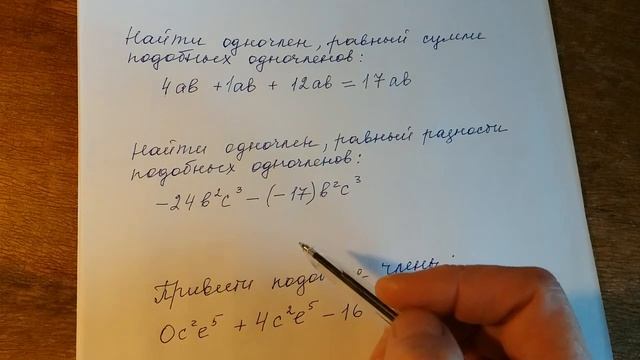 Найти одночлен, равный сумме
подобных одночленов:
4ab + 1ab + 12ab = 17ab
Найти одночлен, равный разности
подобных одночленов:
-24b²c³ - (-17)b²c³
Привести члены
0c²e⁵ + 4c²e⁵ - 16